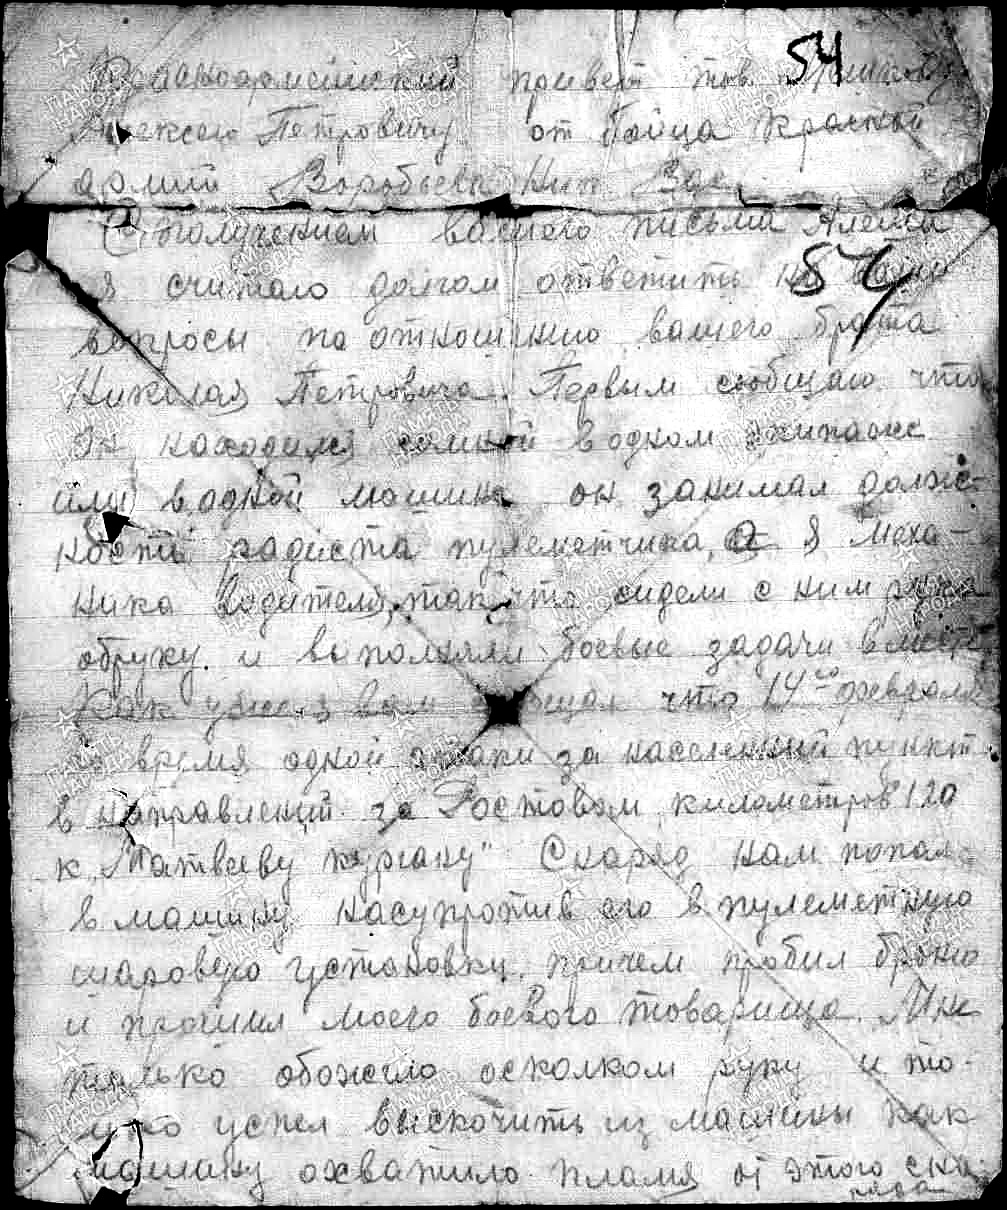 54
Красноармейский привет тов.
Алексею Петровичу от бойца красной
армии Воробьева Ник. Вас.
С получением вашего письма Алексей
54
я считаю долгом ответить на ваши
вопросы по отношению вашего брата
Николая Петровича. Первым сообщаю что
он находился самной в одном экипаже
или в одной машине он занимал долж-
ность радиста пулеметчика, а я меха-
ника водителя, так что сидели с ним рука
обруку. и выполняли боевые задачи вместе
Как уже я вам сообщал что 14го февраля
во время одной атаки за населенный пункт
в направлений за Ростовом километров 120
к "Матвееву кургану" Снаряд нам попал
в машину насупротив его в пулеметную
шаровую установку. причем пробил броню
и прошил моего боевого товарища. Мне
только обожгло осколком руку и то-
лько успел выскочить из машины как
машину охватило пламя от этого сна-
ряда
ПАМЯТЬ НАРОДА